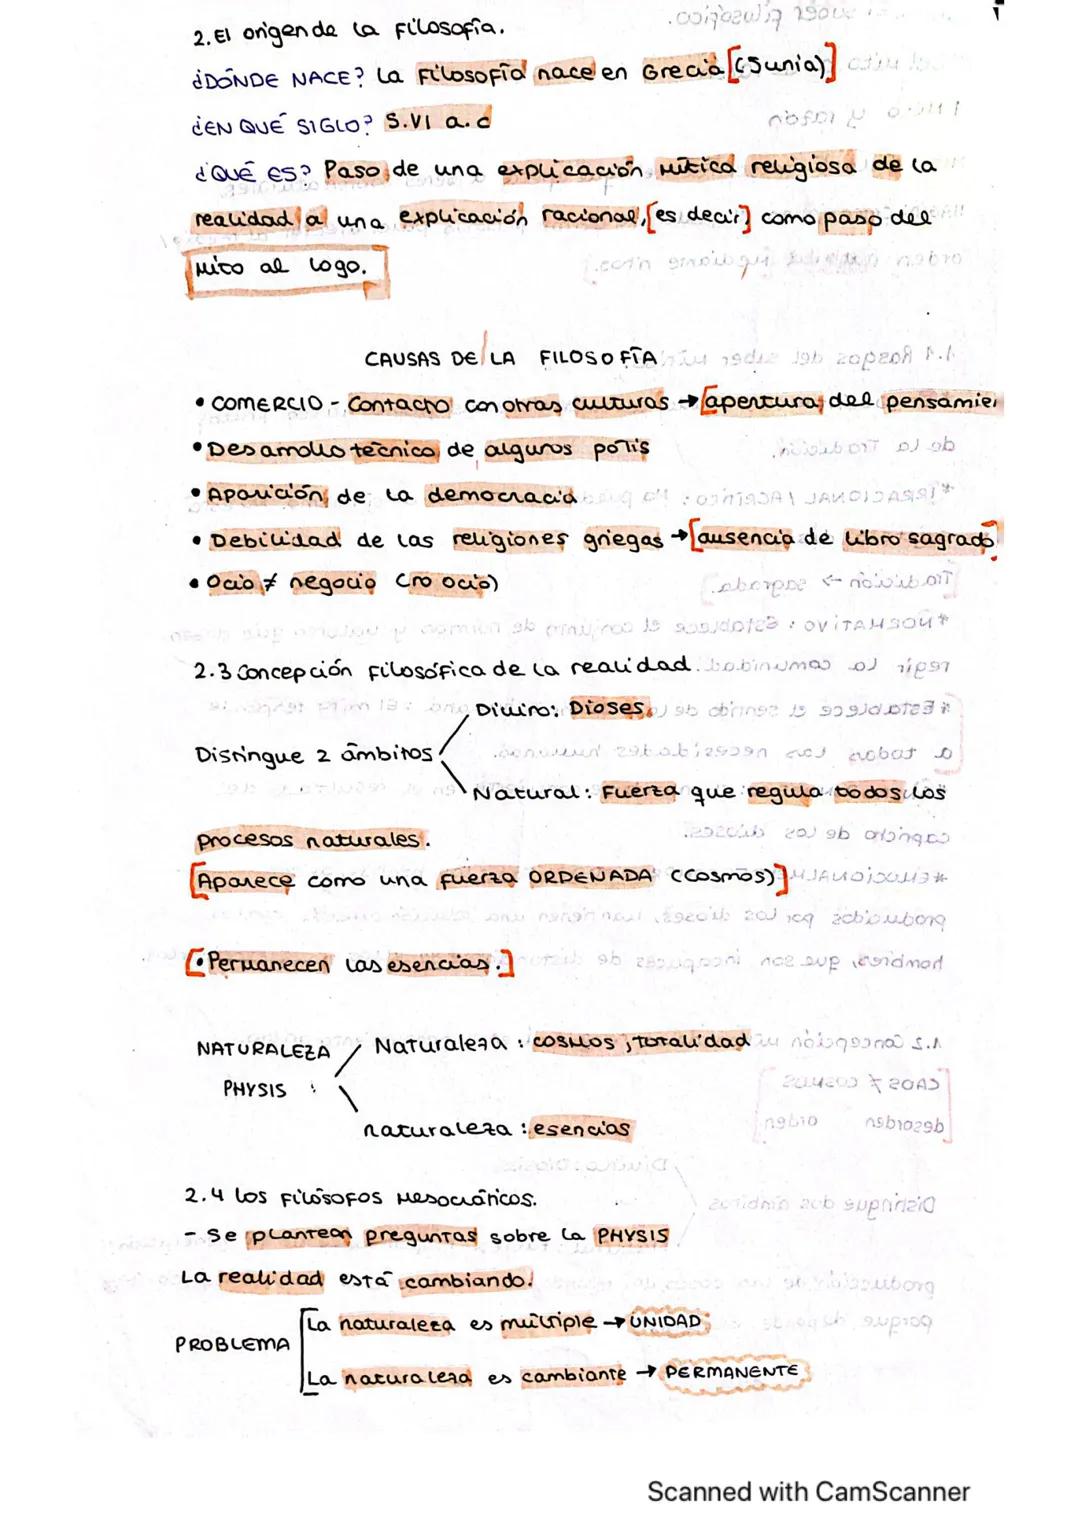 2. El origen de la Filosofía.
¿DÓNDE NACE? La Filosofía nace en Grecia [(Junia)]
¿EN QUÉ SIGLO? S.VI a.c
¿QUÉ ES? Paso de una explicación mítica religiosa de la
realidad a una explicación racional, [es decir] como paso del
mito al logo.
CAUSAS DE LA FILOSOFÍA
• COMERCIO - Contacto con otras culturas → [apertura del pensamien
• Desarrollo técnico de algunos polis
• Aparición de la democracia
• Debilidad de las religiones griegas → [ausencia de libro sagrado]
• Ocio ≠ negocio (no ocio)
2.3 Concepción Filosófica de la realidad.
Distingue 2 ámbitos
Divino: Dioses
Natural: Fuerza que regula todos los
procesos naturales.
[Aparece como una fuerza ORDENADA (Cosmos)]
[• Permanecen las esencias.]
NATURALEZA
PHYSIS :
Naturaleza : cosmos, totalidad
naturaleza : esencias
2.4 los Filósofos
- Se plantean preguntas sobre la PHYSIS
La realidad está cambiando.
PROBLEMA
La naturaleza es múltiple → UNIDAD
La naturaleza es cambiante → PERMANENTE
Scanned with CamScanner